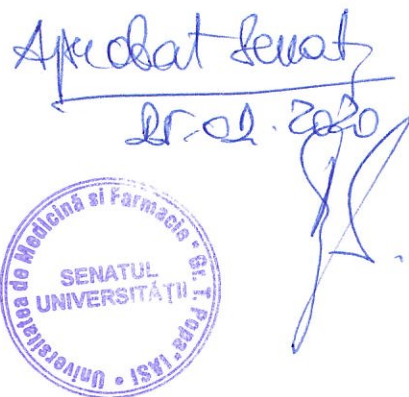 Aprobat Senat
25.02.2020
Universitatea de Medicină si Farmacie - "Gr. T. Popa" IASI •
SENATUL
UNIVERSITĂȚII